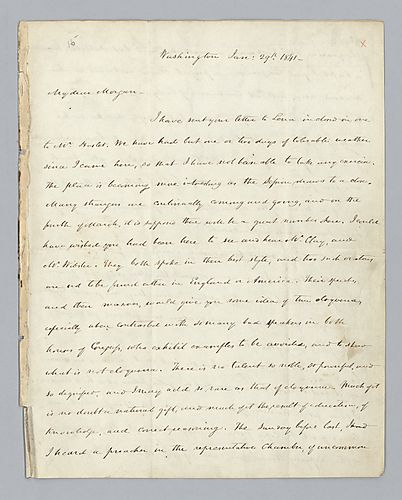 16
x
Washington Jan: 29th 1841 -
My dear Morgan -
I have sent your letter to in one
to Mr. We have had but one or two days of tolerable weather
since I came here, so that I have not been able to take any exercise.
The place is becoming more as the Session draws to a close.
Many strangers are continually coming and going, and on the
fourth of March, it is suppose there will be a great number here. I could
have wished you had been here to see and hear Mr. Clay, and
Mr. They both spoke in their best style, and two such orators
are not to be found either in England or America. Their speeches
and their would give you some idea of true eloquence,
especially when contrasted with so many bad speakers in both
houses of Congress, who exhibit examples to be avoided, and to show
what is not eloquence. There is no talent so noble, so powerful, and
so dignified, and I may add so rare as that of eloquence. Much of it
is no doubt a natural gift, and much of it the result of education, of
knowledge, and correct reasoning. The Sunday before last,
I heard a preacher in the representatives Chamber, of uncommon